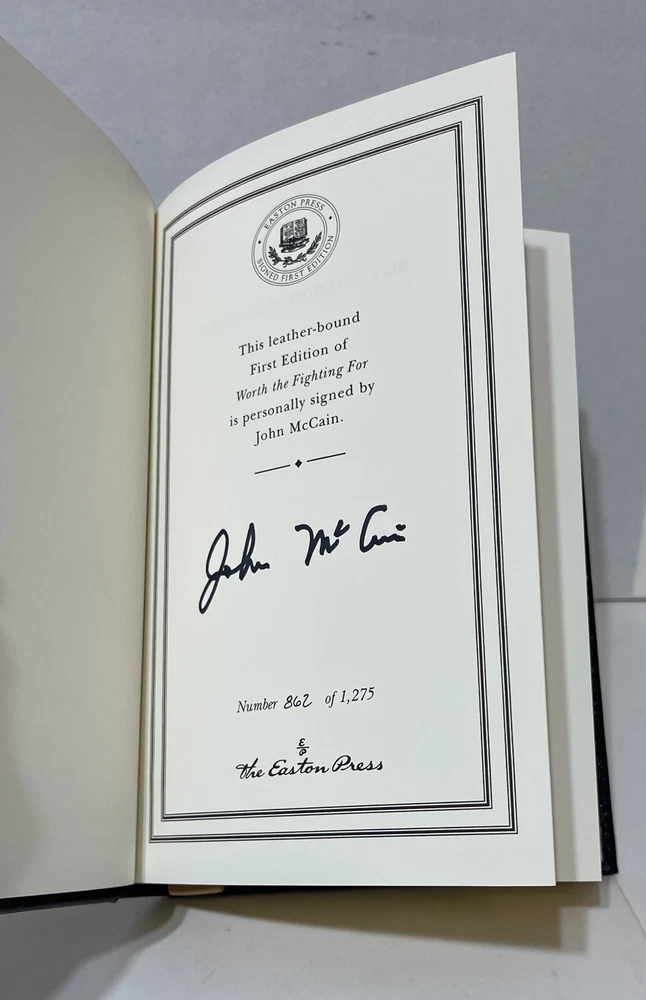 EASTON PRESS
SIGNED FIRST EDITION
This leather-bound
First Edition of
Worth the Fighting For
is personally signed by
John McCain.
John McCain
Number 862 of 1,275
E
P
the Easton Press